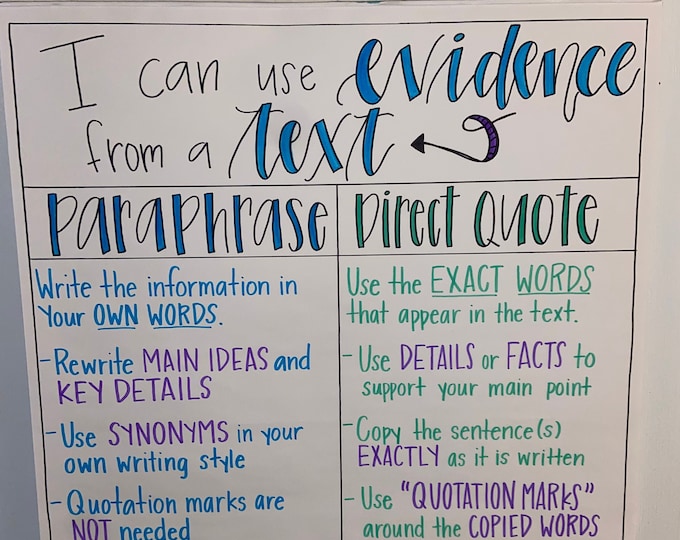 I can use evidence
from a text
Paraphrase
Write the information in
your OWN WORDS.
- Rewrite MAIN IDEAS and
KEY DETAILS
- Use SYNONYMS in your
own writing style
- Quotation marks are
NOT needed
Direct Quote
Use the EXACT WORDS
that appear in the text.
- Use DETAILS or FACTS to
support your main point
- Copy the sentence(s)
EXACTLY as it is written
- Use "QUOTATION MARKS"
around the COPIED WORDS